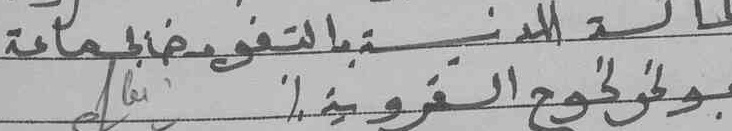 الحالة المدنية بالتفويض لجماعة
بولخولخوج القروية ./.